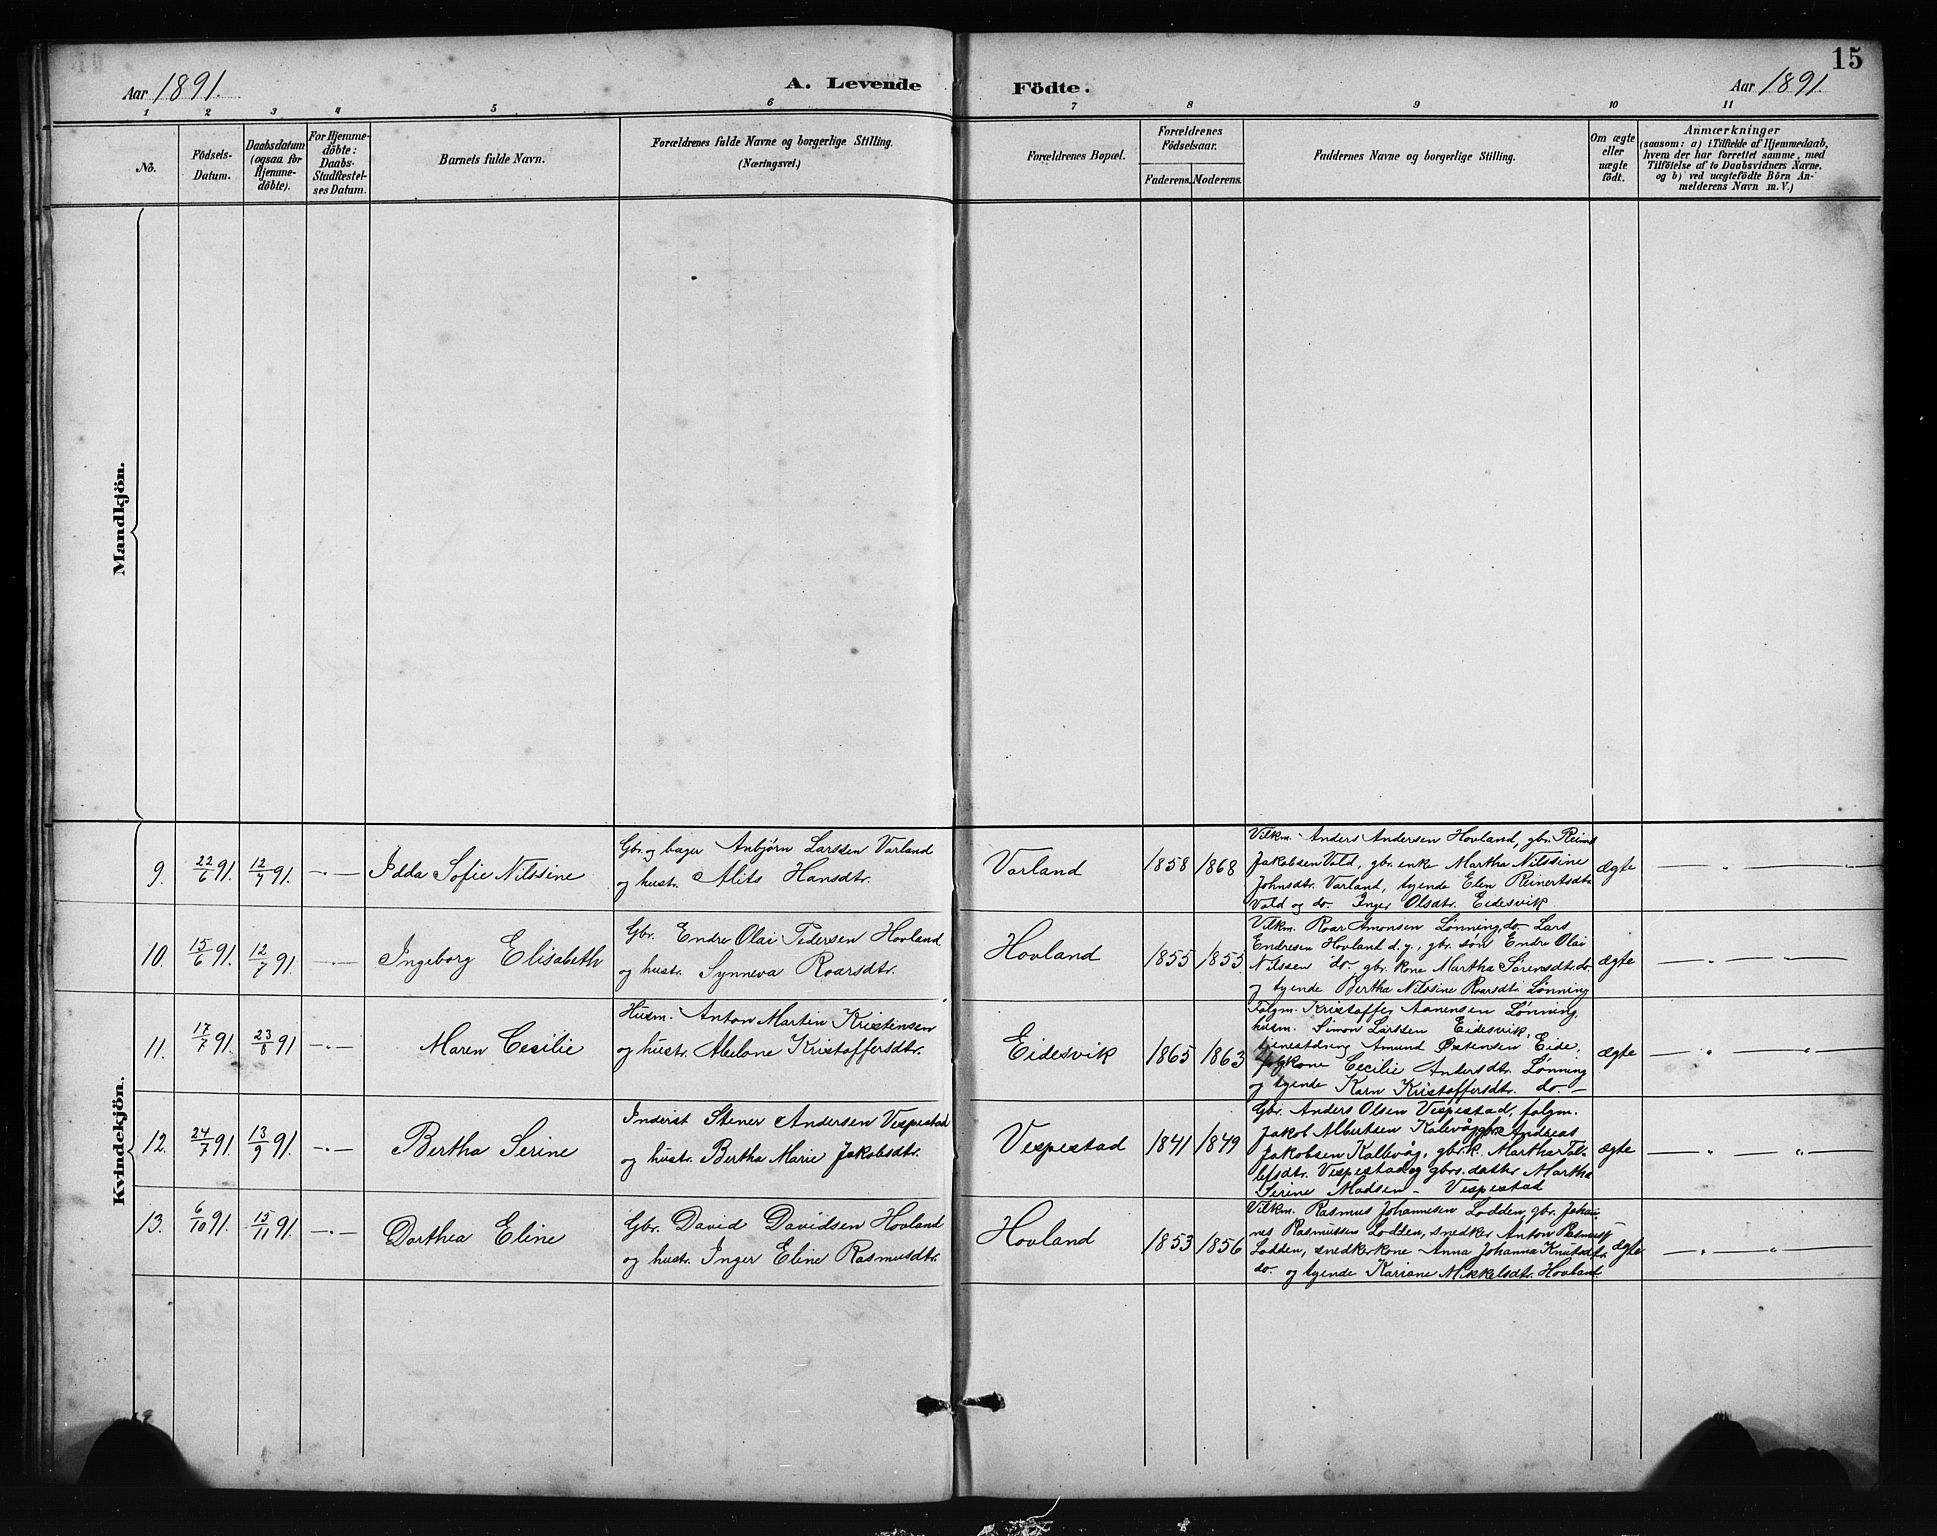 15
Aar 1891.
A. Levende Födte.
Aar 1891.
1 2 3 4 5 6 7 8 9 10 11
No.
Födsels-
Datum.
Daabsdatum
(ogsaa for
Hjemme-
döbte).
For Hjemme-
döbte:
Daabs-
Stadfæstel-
ses Datum.
Barnets fulde Navn.
Forældrenes fulde Navne og borgerlige Stilling.
(Næringsvei.)
Forældrenes Bopæl.
Forældrenes
Födselsaar.
Faderens. Moderens.
Faddernes Navne og borgerlige Stilling.
Om ægte
eller
uægte
födt.
Anmærkninger
(saasom: a) i Tilfælde af Hjemmedaab,
hvem der har forrettet samme, med
Tilföielse af to Daabsvidners Navne.
og b) ved uægtefödte Börn An-
melderens Navn m. V.)
Mandkjön.
Kvindekjön.
9. 22/6 91. 12/7 91. -"- Idda Sofie Nilssine
Gbr. og bager Anbjørn Larssen Varland
og hustr. Alits Hansdtr.
Varland 1858 1868
Vilkm. Anders Andersen Hovland, gbr. Reinert
Jakobsen Vold, gbr. enke Martha Nilssine
Johnsdtr. Varland, tyende Elen Reinertsdtr.
Vold og do. Inger Olsdtr. Eidesvik
ægte — " — " —
10. 15/6 91. 12/7 91. -"- Ingeborg Elisabeth
Gbr. Endre Olai Pedersen Hovland
og hustr. Synneva Roarsdtr.
Hovland 1855 1855
Vilkm. Roar Amonsen Lønning, do. Lars
Endresen Hovland d. y., gbr. søn Endre Olai
Nilssen do. gbr. kone Martha Sørensdtr. do.
og tyende Bertha Nilssine Roarsdtr. Lønning
ægte — " — " —
11. 17/7 91. 23/8 91 -"- Maren Cecilie
Husm. Anton Martin Kristensen
og hustr. Abelone Kristoffersdtr.
Eidesvik 1865 1863
Følgm. Kristoffer Aanensen Lønning,
husm. Simon Larssen Eidesvik,
tjenestdreng Amund Østensen Eide,
følgkone Cecilie Andersdtr. Lønning
og tyende Karn Kristoffersdtr. do. —
ægte — " — " —
12. 24/7 91. 13/9 91. -"- Bertha Serine
Inderst Stener Andersen Vespestad
og hustr. Bertha Marie Jakobsdtr.
Vespestad 1841 1849
Gbr. Anders Olsen Vespestad, følgm.
Jakob Albertsen Kalevåg, gbr. Andreas
Jakobsen Kallevåg, gbr. k. Martha Tol-
lefsdtr. Vespestad og gbrs. datter Martha
Serine Madsen - Vespestad
ægte — " — " —
13. 6/10 91. 15/11 91. -"- Dorthea Eline
Gbr. David Davidsen Hovland
og hustr. Inger Eline Rasmusdtr.
Hovland 1853 1856
Vilkm. Rasmus Johannesen Lodden, gbr. Johan-
nes Rasmussen Lodden, snedker Anton Rasmuss.
Lodden, snedkerkone Anna Johanna Knutsdtr.
do. og tyende Kariane Mikkelsdtr. Hovland.
ægte — " — " —